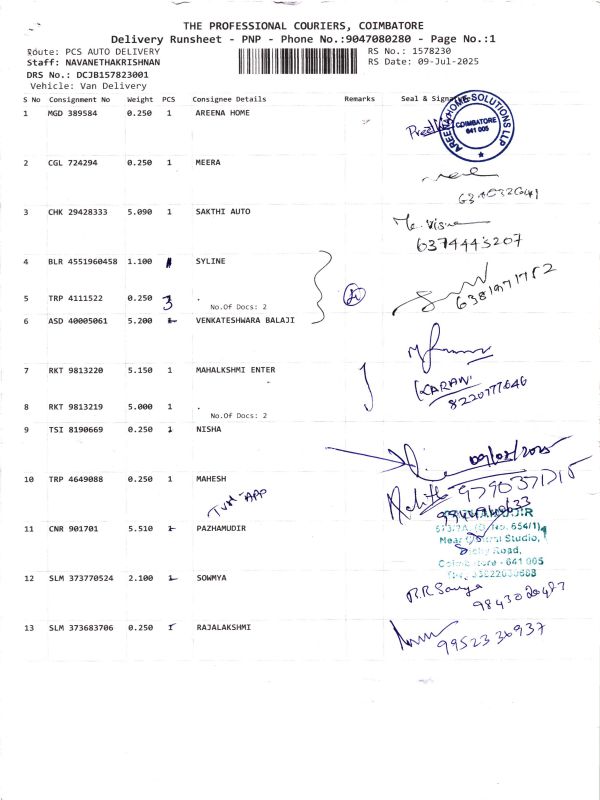 THE PROFESSIONAL COURIERS, COIMBATORE
Delivery Runsheet - PNP - Phone No.:9047080280 - Page No.:1
Route: PCS AUTO DELIVERY
RS No.: 1578230
Staff: NAVANETHAKRISHNAN
RS Date: 09-Jul-2025
DRS No.: DCJB157823001
Vehicle: Van Delivery
S No Consignment No Weight PCS Consignee Details Remarks Seal &
1 MGD 389584 0.250 1 AREENA HOME
AREENA HOME SOLUTIONS LLP
COIMBATORE
641 005
2 CGL 724294 0.250 1 MEERA
3 CHK 29428333 5.090 1 SAKTHI AUTO
6374443207
4 BLR 4551960458 1.100 SYLINE
5 TRP 4111522 0.250 3 .
No.Of Docs: 2
6381971752
6 ASD 40005061 5.200 VENKATESHWARA BALAJI
7 RKT 9813220 5.150 1 MAHALKSHMI ENTER
KARAN
8220777646
8 RKT 9813219 5.000 1 .
No.Of Docs: 2
9 TSI 8190669 0.250 1 NISHA
10 TRP 4649088 0.250 1 MAHESH
9790371715
11 CNR 901701 5.510 PAZHAMUDIR
654/1)
Studio,
Road,
641 005
12 SLM 373770524 2.100 SOWMYA
9843020487
13 SLM 373683706 0.250 RAJALAKSHMI
9952336937